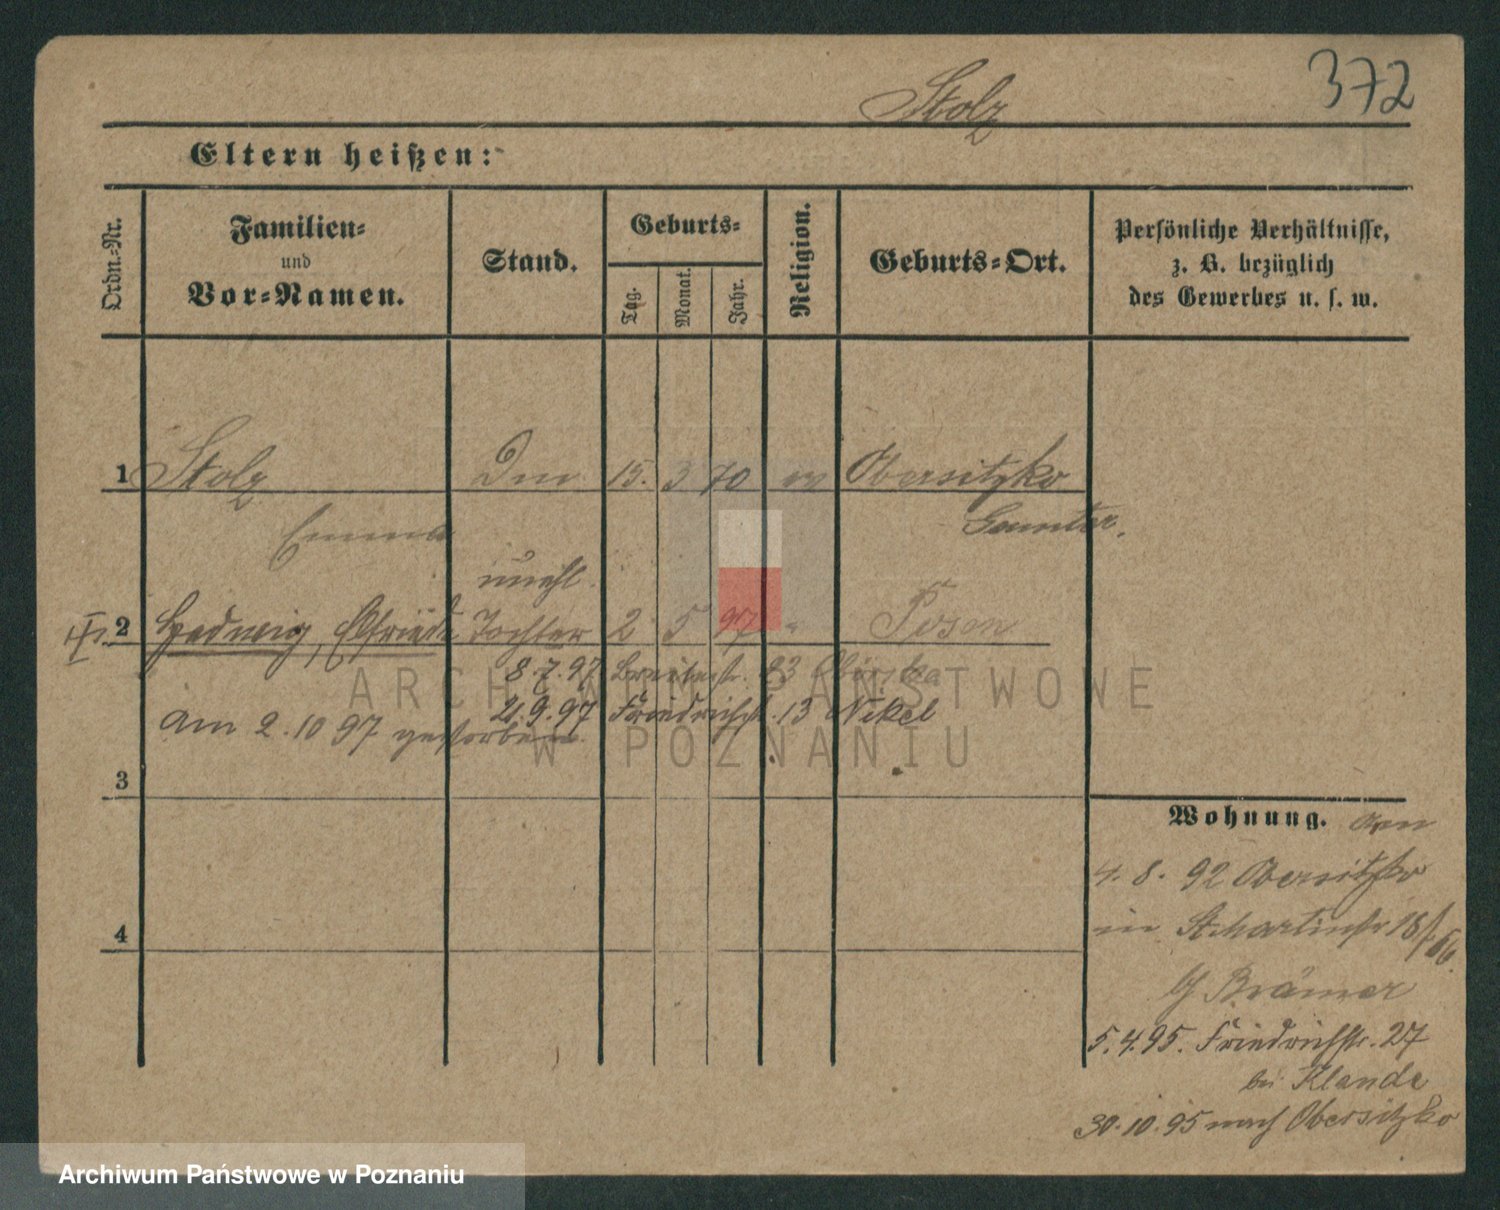 Stolz
372
Eltern heißen:
Ordn.-Nr.
Familien- und Vor-Namen.
Stand.
Geburts-
Tag.
Monat.
Jahr.
Religion.
Geburts-Ort.
Persönliche Verhältnisse, z. B. bezüglich des Gewerbes u. s. w.
1 Stolz 15. 3 70 ev Obersitzko
Emma Samter.
unehl.
2 Hedwig, Elfriede Tochter 2 5 97 " Posen
8.7.97 Breitestr. 23
21.9.97 Friedrichstr. 13 Nekel
am 2.10 97 gestorben.
3
4
Wohnung. von
4. 8. 92 Obersitzko
in St. Martinstr 18/
Brämer
5.4.95. Friedrichstr. 27
bei Klande
30.10.95 nach Obersitzko
ARCHIWUM PAŃSTWOWE
W POZNANIU
Archiwum Państwowe w Poznaniu